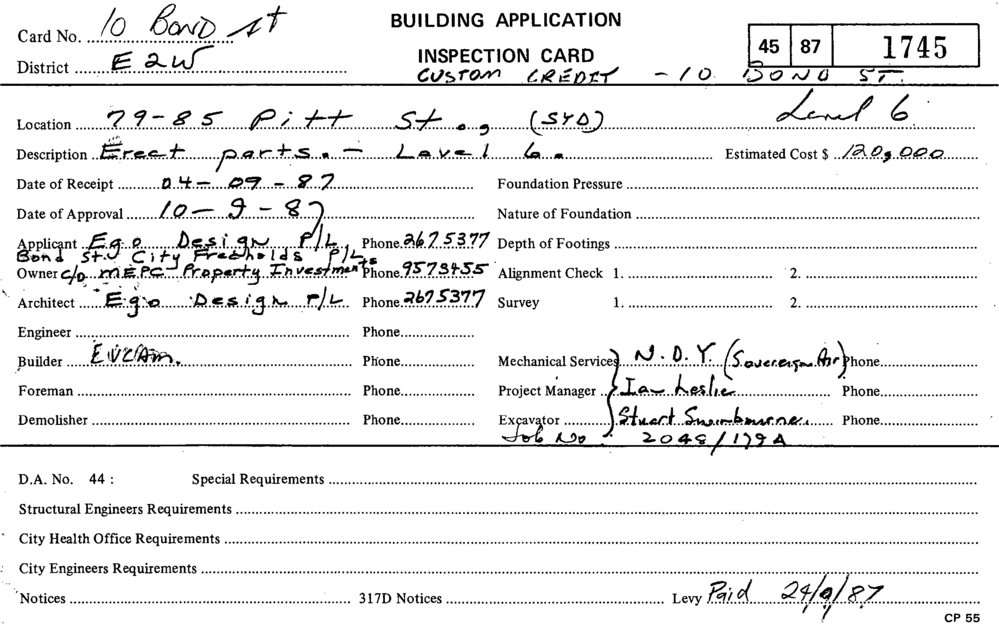 Card No. 10 Bond St
BUILDING APPLICATION
District E2W
INSPECTION CARD
45 87 1745
CUSTOM CREDIT - 10 BOND ST.
Location 79-85 Pitt St., (SYD) Level 6
Description Erect parts. - Level 6. Estimated Cost $ 120,000
Date of Receipt 04-09-87 Foundation Pressure
Date of Approval 10-9-87 Nature of Foundation
Applicant Ego Design P/L Phone 2675377 Depth of Footings
Bond St. City Freeholds P/L
Owner c/o MEPC Property Investments Phone 9573455 Alignment Check 1. 2.
Architect Ego Design P/L Phone 2675377 Survey 1. 2.
Engineer Phone
Builder Phone Mechanical Services N.D.Y. (Sovereign Air) Phone
Foreman Phone Project Manager Ian Leslie Phone
Demolisher Phone Excavator Stuart Swinbourne. Phone
Job No : 2048/179A
D.A. No. 44 : Special Requirements
Structural Engineers Requirements
City Health Office Requirements
City Engineers Requirements
Notices 317D Notices Levy Paid 24/9/87
CP 55